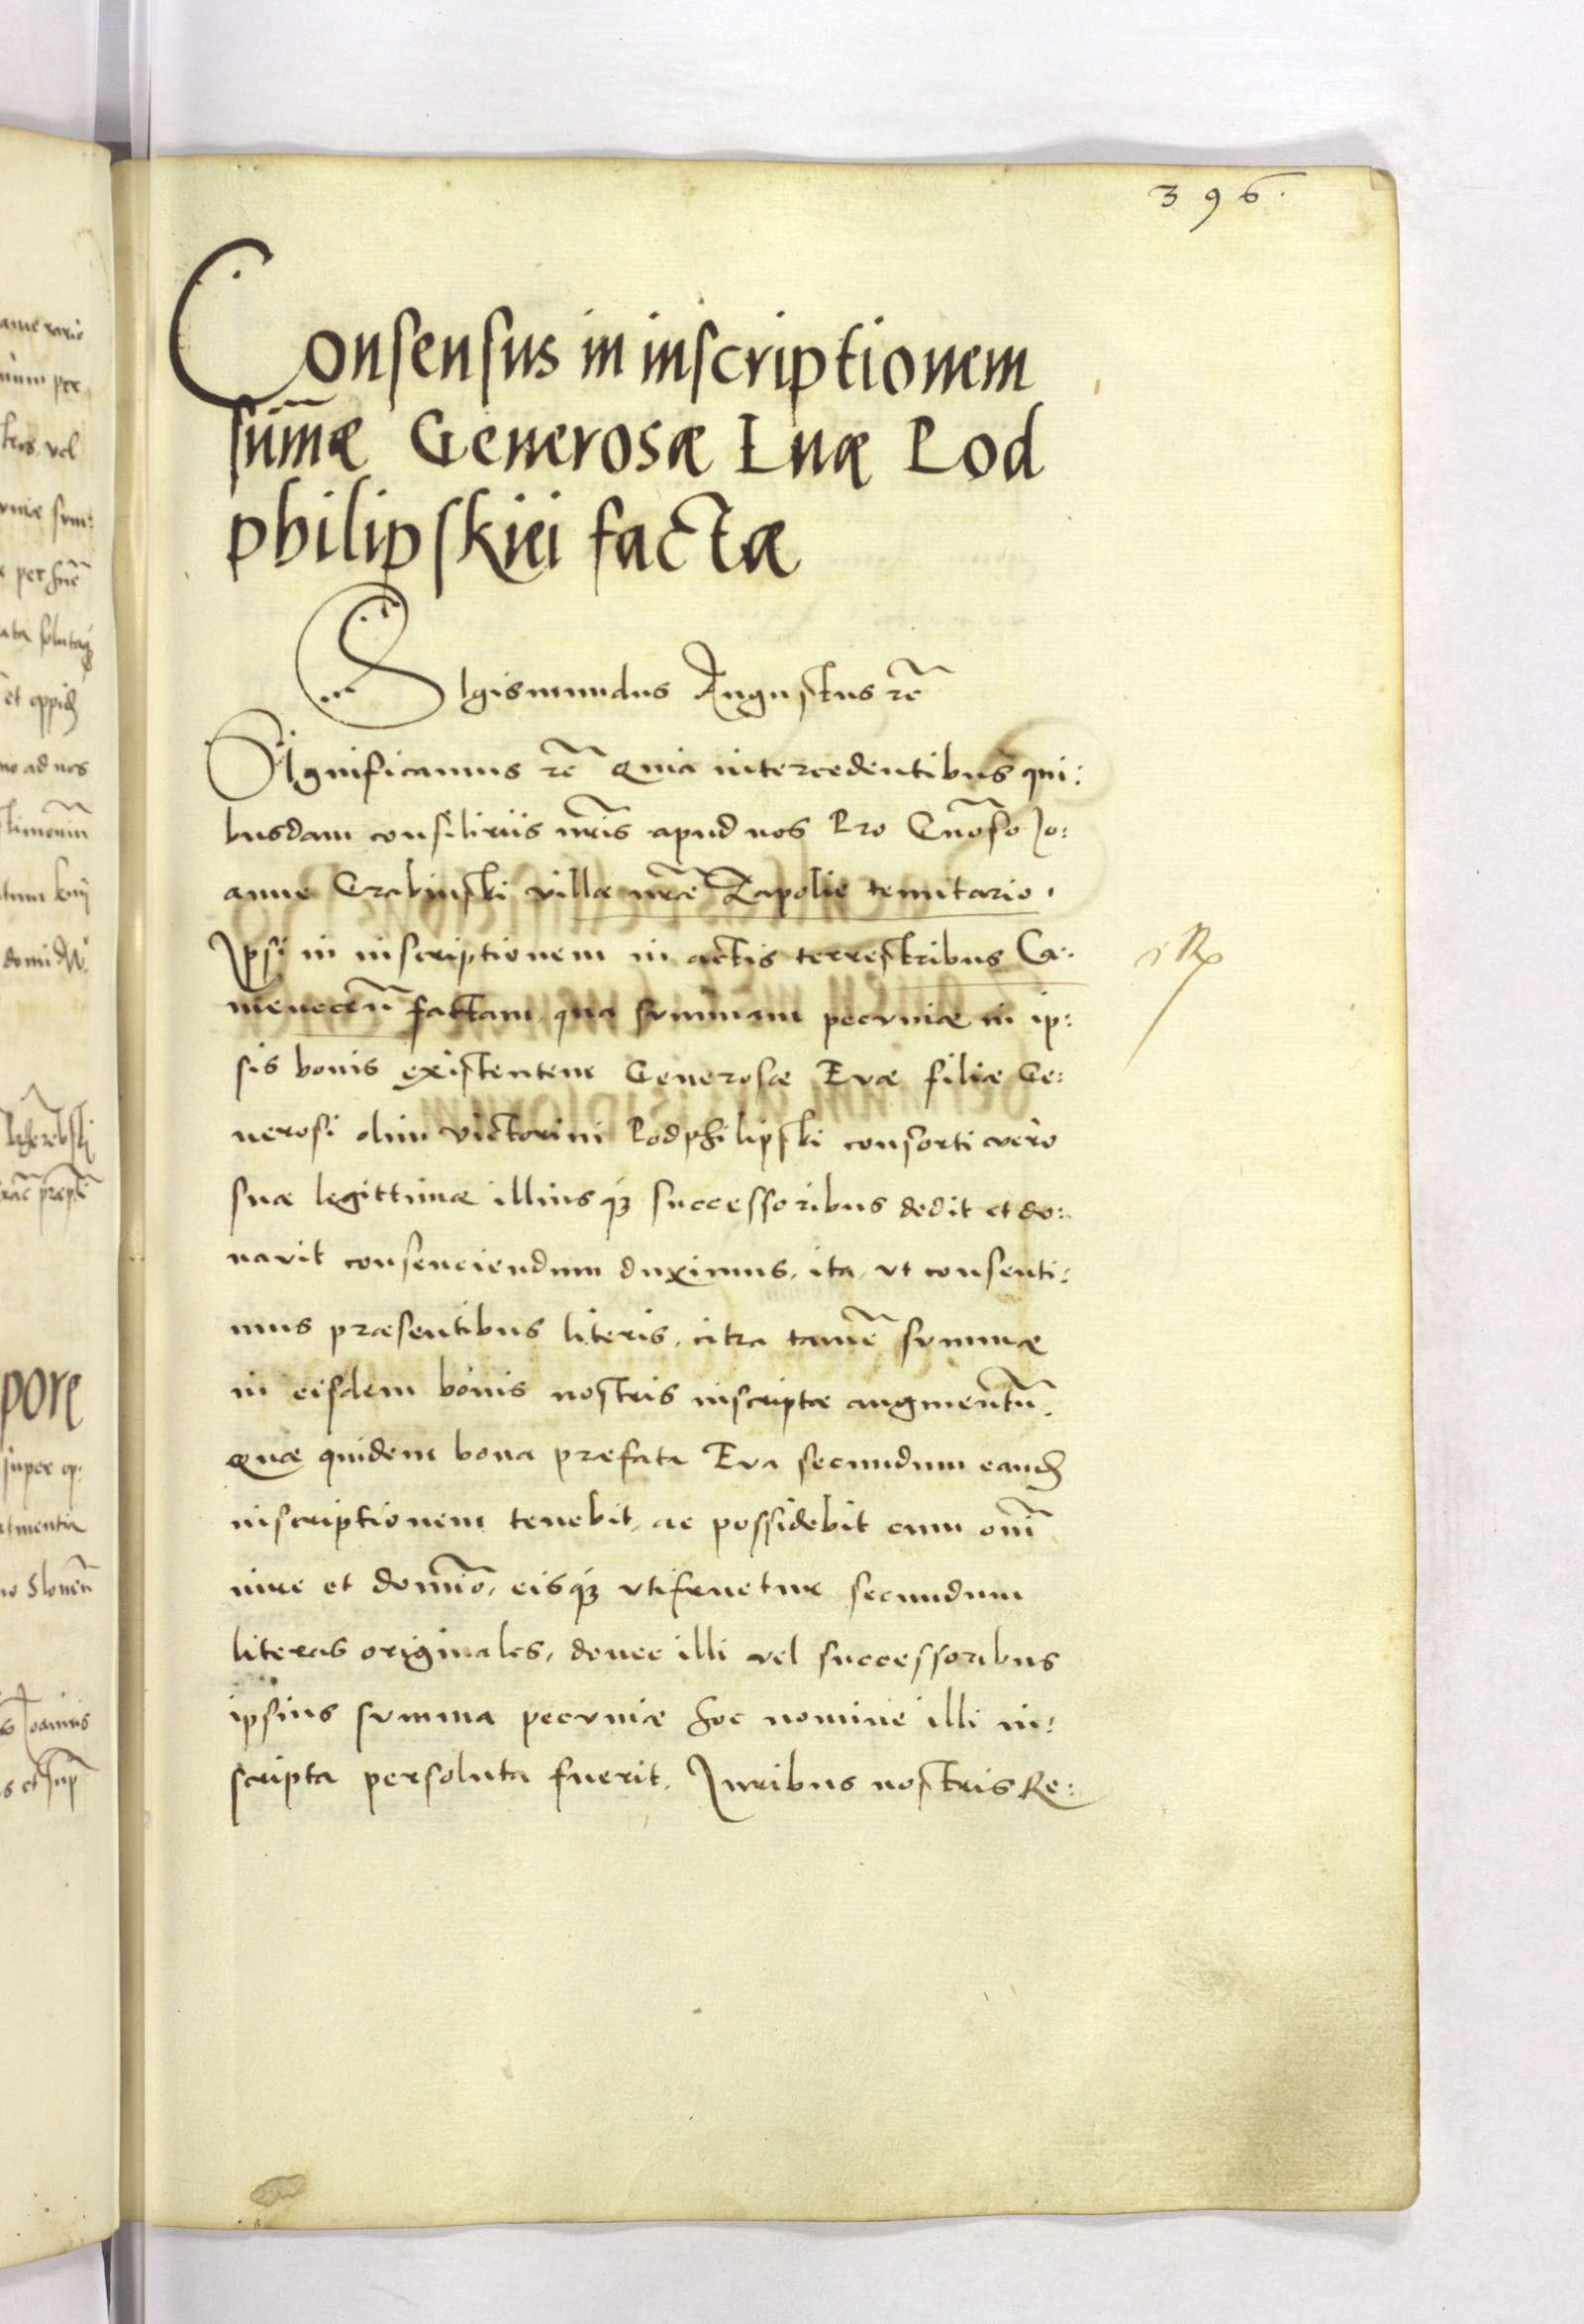 396.
Consensus in inscriptionem
sum̃æ Generosæ Evæ Pod
philipskiei factæ
SIgismundus Augustus rc̃
SIgnificamus rc̃ Quia intercedentibus qui:
busdam consiliariis nr̃is apud nos Pro Gñoso Jo:
anne Grabinski villæ nr̃æ Zapolie tenutario.
Ipsi in inscriptionem in actis terrestribus Ca:
menecen̄ factam, qua summam pecuniæ in ip:
sis bonis existentem Generosæ Evæ filiæ Ge:
nerosi olim victorini Podphilipski consorti vero
suæ legittimæ illiusq́ꝫ successoribus dedit et do:
navit consenciendum duximus, ita, vt consenti:
mus præsentibus literis, citra tamẽ summæ
in eisdem bonis nostris inscriptæ augmentũ.
Quæ quidem bona præfata Eva secundum eand̃
inscriptionem tenebit, ac possidebit cum om̃i
iure et domĩo, eisq́ꝫ vtifruetur secundum
literas originales, donec illi vel successoribus
ipsius summa pecuniæ hoc nomine illi in:
scripta persoluta fuerit. Iuribus nostris Re: